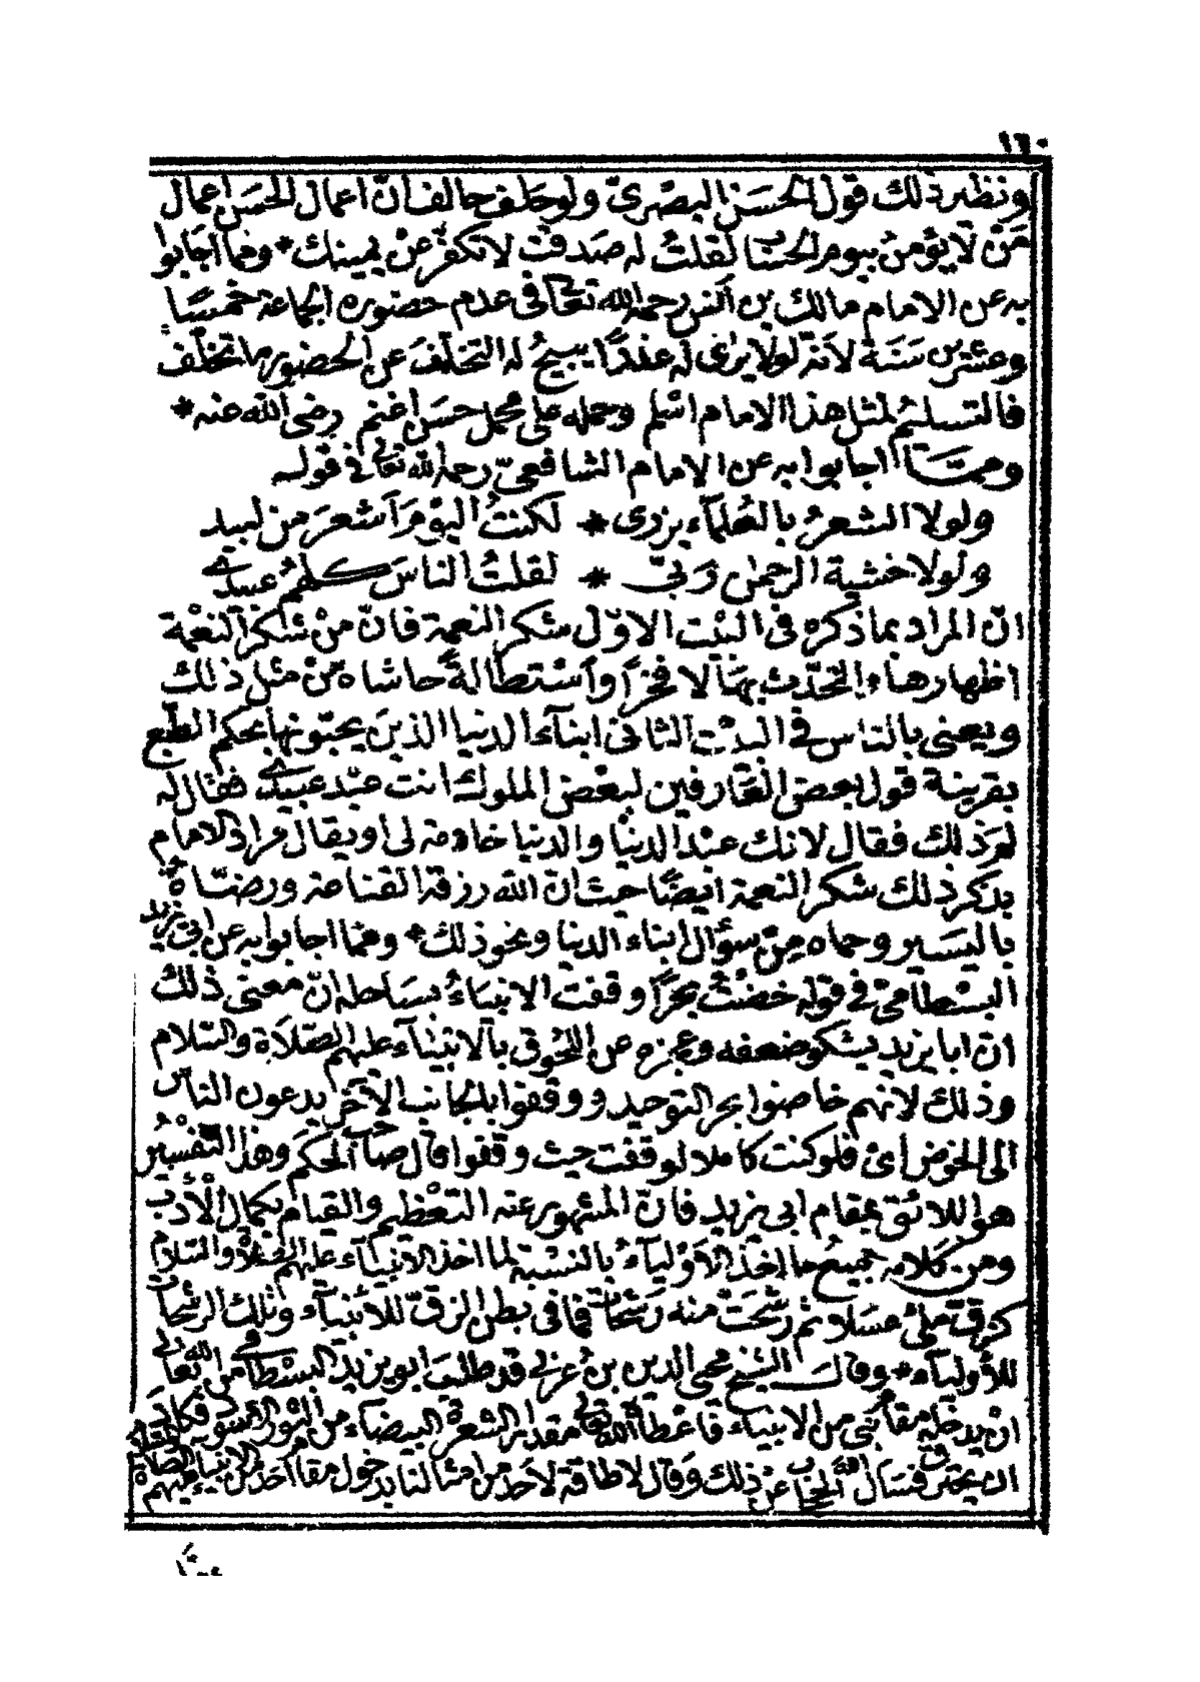 ١٦٠
ونظير ذلك قول الحسن البصرىّ ولو حلف حالف انّ اعمال الحسن اعمال
من لا يؤمن بيوم الحساب لقلت له صدقت لا تكفّر عن يمينك * ومما اجابوا
به عن الامام مالك بن انس رحمه الله تعالى فى عدم حضوره الجماعة خمسًا
وعشرين سنة لانّه لولا يرى له عذرًا يبيح له التخلّف عن الحضور ما تخلّف
فالتسليم لمثل هذا الامام اسلم وحمله على محمل حسن اغنم رضى الله عنه *
وممّا اجابوا به عن الامام الشافعىّ رحمه الله تعالى فى قوله
ولولا الشعر بالعلمآء يزرى * لكنت اليوم اشعر من لبيد
ولولا خشية الرحمن ربّى * لقلت الناس كلهم عبيدى
انّ المراد بما ذكره فى البيت الاوّل شكر النعمة فانّ من شكر النعمة
اظهارها والتحدّث بها لا فخرًا واستطالةً حاشاه من مثل ذلك
ويعنى بالناس فى البيت الثانى ابنآء الدنيا الذين يحبّونها بحكم الطبع
بقرينة قول بعض العارفين لبعض الملوك انت عبد عبيدى فقال له
لم ذلك فقال لانك عبد الدنيا والدنيا خادمة لى او يقال مراد الامام
بذكر ذلك شكر النعمة ايضًا حيث ان الله رزقه القناعة ورضّاه
باليسير وحماه من سؤال ابناء الدنيا ونحو ذلك * ومما اجابوا به عن ابى يزيد
البسطامىّ فى قوله خضت بحرًا وقفت الانبيآء بساحله انّ معنى ذلك
انّ ابا يزيد يشكو ضعفه وعجزه عن اللحوق بالانبيآء عليهم الصلاة والسلام
وذلك لانهم خاضوا بحر التوحيد ووقفوا بالجانب الآخر يدعون الناس
الى الخوض اى فلو كنت كاملا لوقفت حيث وقفوا قال صاحب الحكم وهذا التفسير
هو اللائق بمقام ابى يزيد فانّ المشهور عنه التعظيم والقيام بكمال الأدب
ومن كلامه جميع ما اخذ الأوليآء بالنسبة لما اخذ الانبيآء عليهم الصلاة والسلام
كزقّ ملئ عسلا ثم رشحت منه رشحات فما فى بطن الزقّ للأنبيآء وتلك الرشحات
للأوليآء * وقال الشيخ محيى الدين بن عربى قد طلب ابو يزيد البسطامى من الله تعالى
ان يدخله مقام نبى من الانبيآء فاعطاه الله تعالى مقدار الشعرة البيضاء من الثور الاسود فكاد
ان يحترق فسأل الله الحجاب عن ذلك وقال لا طاقة لاحد من امثالنا بدخول مقام احد من الانبيآء عليهم الصلاة والسلام